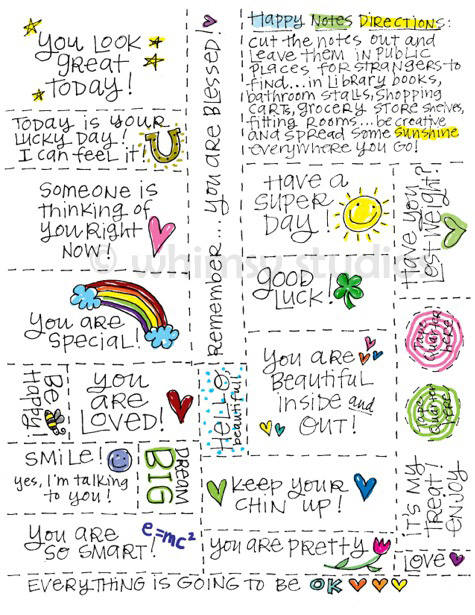 YOU LOOK
GREAT
TODAY!
TODAY IS YOUR
LUCKY DAY!
I CAN FEEL IT!
SOMEONE IS
THINKING OF
YOU RIGHT
NOW!
YOU ARE
SPECIAL!
Be
Happy!
YOU
ARE
LOVED!
SMILE!
yes, I'm talking
to you!
DREAM
BIG
YOU ARE
SO SMART!
e=mc²
EVERYTHING IS GOING TO BE OK
Remember... YOU ARE BLESSED!
HAPPY NOTES DIRECTIONS:
CUT THE NOTES OUT AND
LEAVE THEM IN PUBLIC
PLACES FOR STRANGERS TO
FIND... IN LIBRARY BOOKS,
BATHROOM STALLS, SHOPPING
CARTS, GROCERY STORE SHELVES,
FITTING ROOMS... BE CREATIVE
AND SPREAD SOME SUNSHINE
EVERYWHERE YOU GO!
HAVE A
SUPER
DAY!
GOOD
LUCK!
HAVE YOU
LOST WEIGHT?
YOU ARE
BEAUTIFUL
INSIDE and
OUT!
HELLO,
beautiful!
Tape
quarter
here
KEEP YOUR
CHIN UP!
IT'S MY
TREAT!
ENJOY
YOU ARE PRETTY
LOVE
© whimsy studio